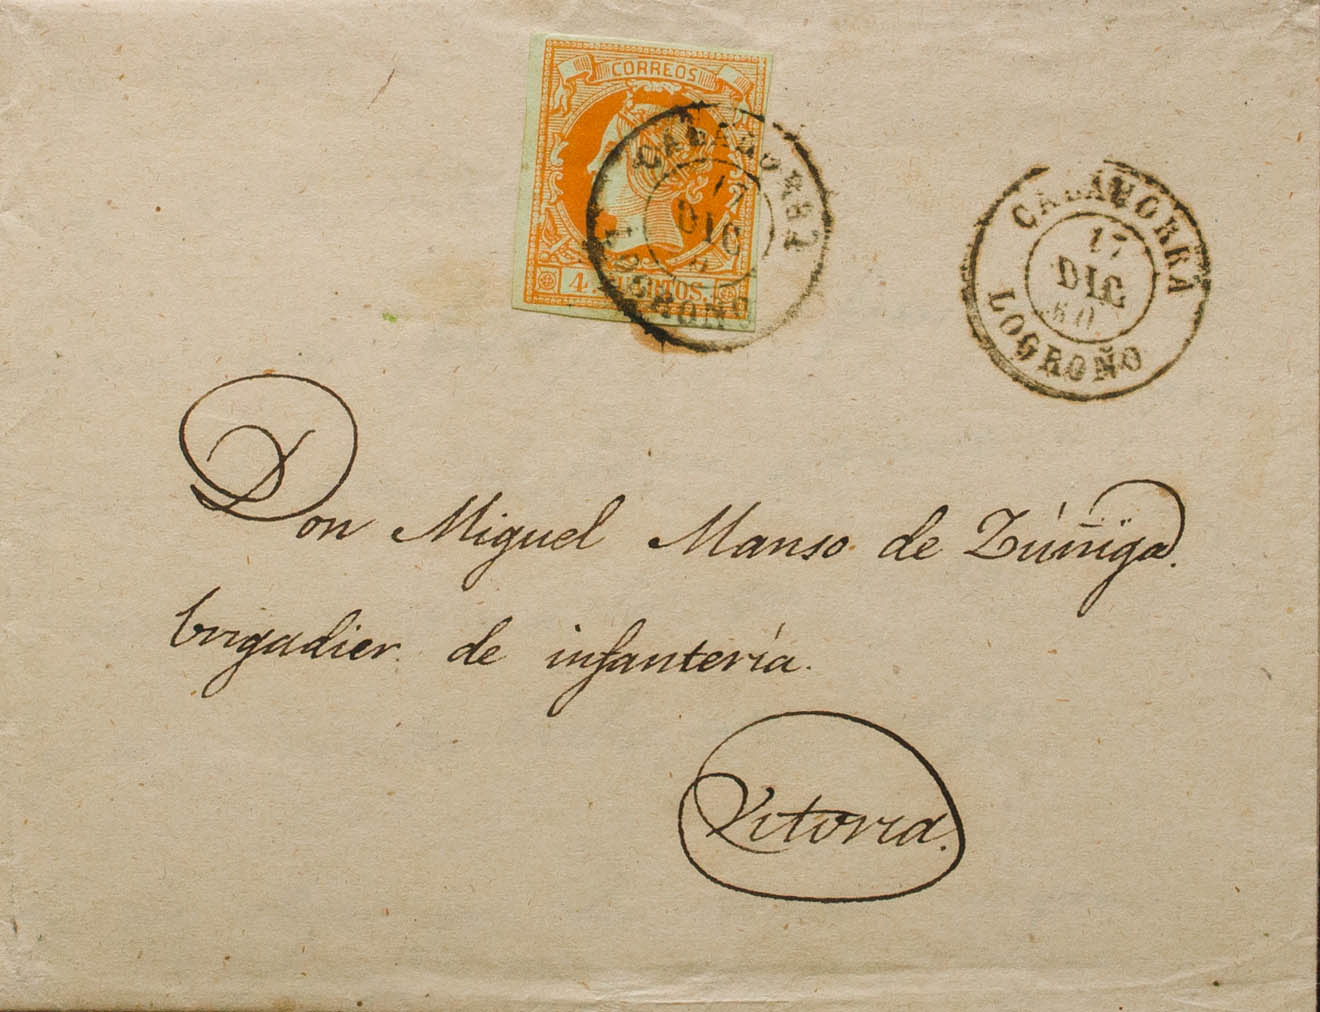 CORREOS
4 CUARTOS.
CALAHORRA
17
DIC
LOGROÑO
CALAHORRA
17
DIC
60.
LOGROÑO
Don Miguel Manso de Zúñiga.
brigadier de infantería.
Vitoria.